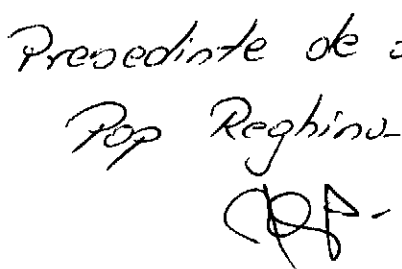 Presedinte de
Pop Reghina